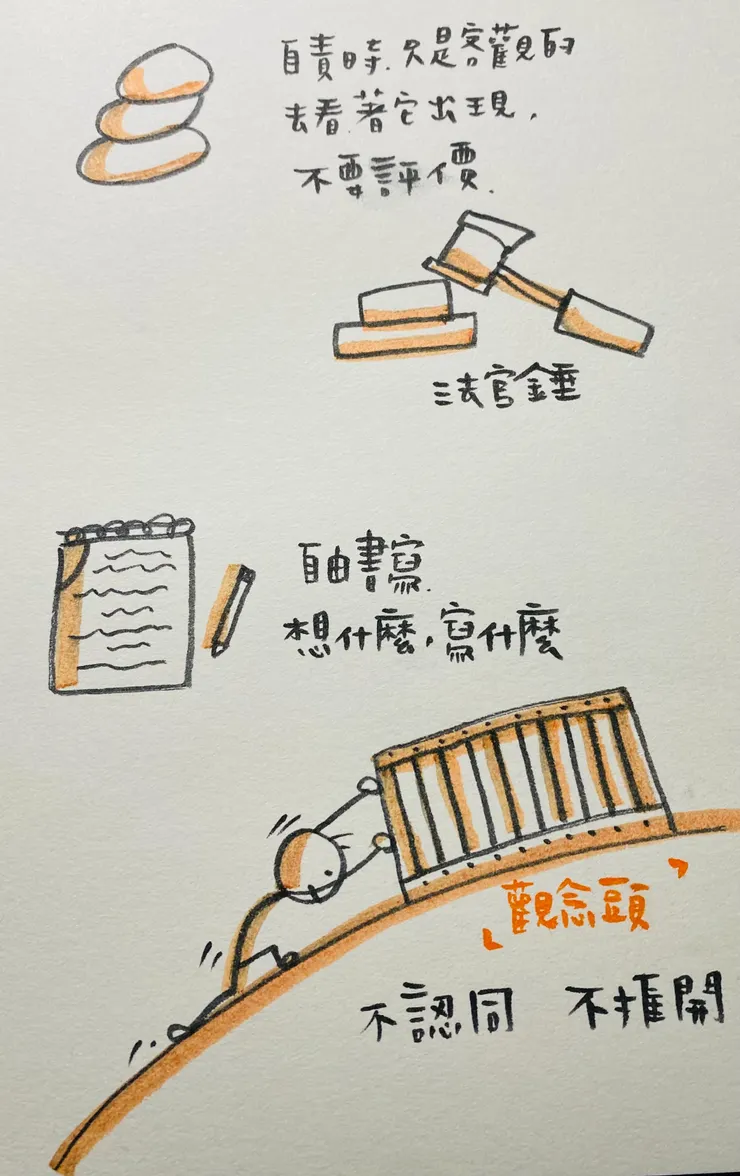 自責時.只是客觀的
去看著它出現,
不要評價.
法官錘
自由書寫.
想什麼,寫什麼
「觀念頭」
不認同 不推開